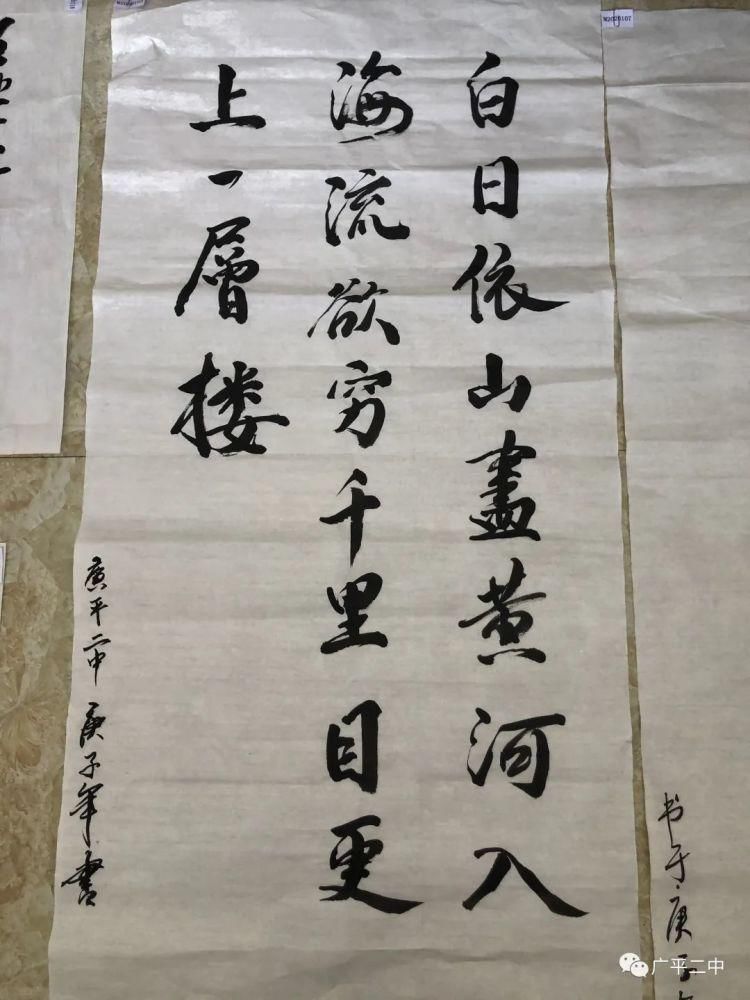 白日依山盡黄河入
海流欲穷千里目更
上一層楼
廣平二中 庚子年書
书于庚子
W2020107
广平二中